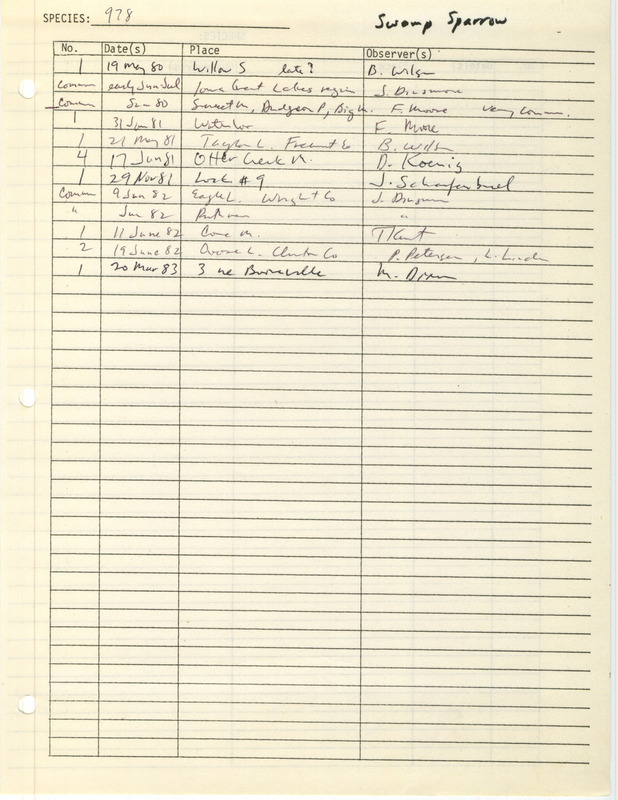 SPECIES: 978 Swamp Sparrow
No. Date(s) Place Observer(s)
1 19 May 80 Willow S late? B. Wilson
common early Jun-Jul Iowa Great Lakes region J. Dinsmore
common Jun 80 Sweet M, Dudgeon P, Big M. F. Moore very comm.
1 31 Jan 81 Waterloo F. Moore
1 21 May 81 Taylor L. Fremont Co B. Wilson
4 17 Jun 81 Otter Creek M. D. Koenig
1 29 Nov 81 Lock # 9 J. Schaufenbuel
Common 9 Jun 82 Eagle L. Wright Co J. Dinsmore
" Jun 82 "
1 11 June 82 Cone M. T Kent
2 19 June 82 Goose L. Clinton Co P. Petersen, L. Linder
1 20 Mar 83 3 ne M.